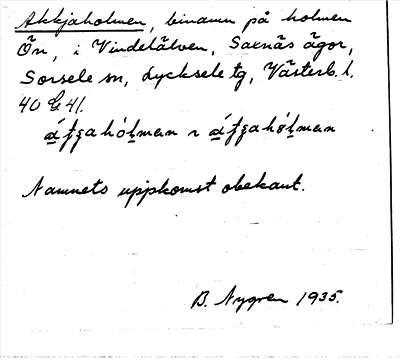 Akkjaholmen, binamn på holmen
Ön, i Vindelälven, Saxnäs ägor,
Sorsele sn, Lycksele tg, Västerb. l.
40 G 41.
Namnets uppkomst obekant.
B. Nygren 1935.